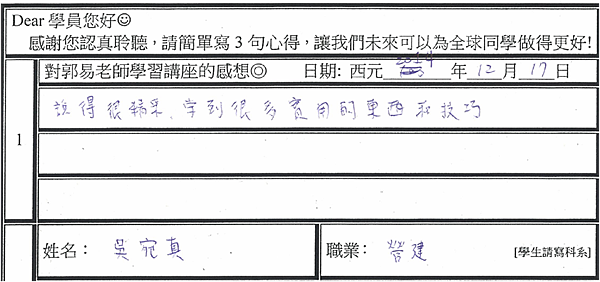 Dear 學員您好☺
感謝您認真聆聽，請簡單寫 3 句心得，讓我們未來可以為全球同學做得更好!
對郭易老師學習講座的感想◎ 日期: 西元 2014 年 12 月 17 日
1
說得很精采，學到很多實用的東西和技巧
姓名： 吳宛真 職業： 營建 [學生請寫科系]